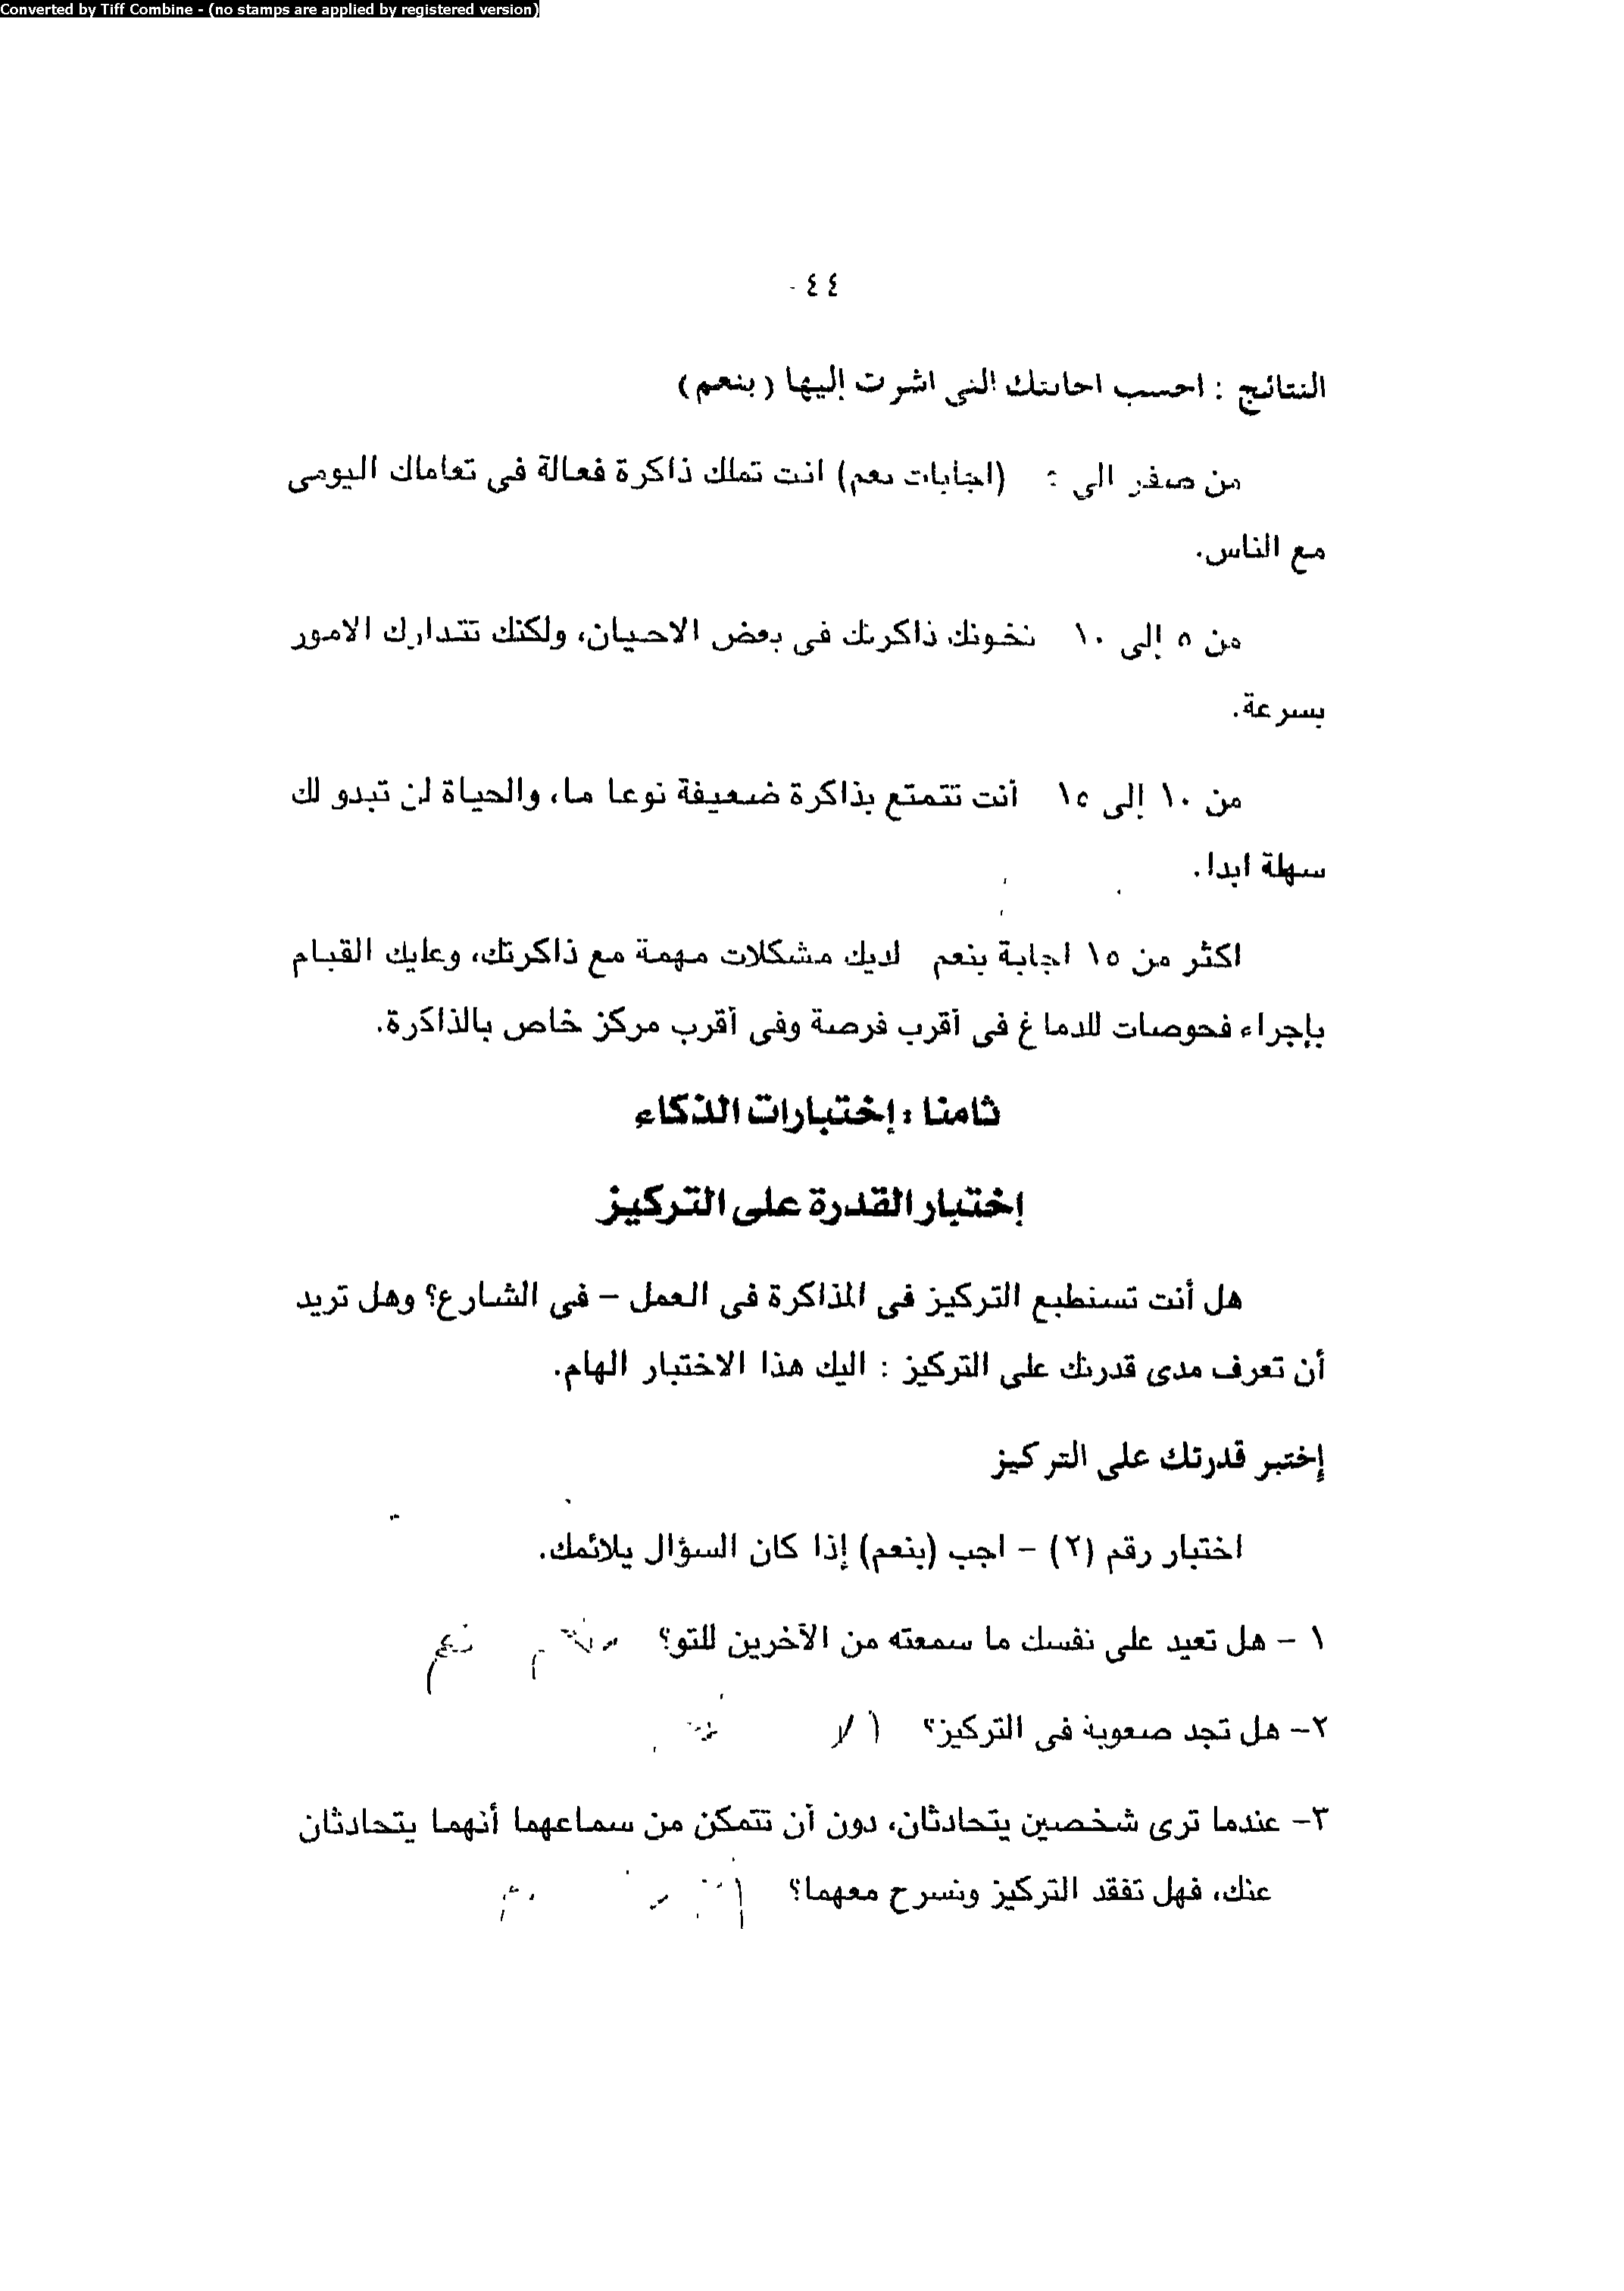 Converted by Tiff Combine - (no stamps are applied by registered version)
٤٤
النتائج : احسب اجابتك التى اشرت إليها (بنعم)
من صفر الى : (اجابات نعم) انت تملك ذاكرة فعالة فى تعاملك اليومى
مع الناس.
من ٥ إلى ١٠ تخونك ذاكرتك فى بعض الاحيان، ولكنك تتدارك الامور
بسرعة.
من ١٠ إلى ١٥ أنت تتمتع بذاكرة ضعيفة نوعا ما، والحياة لن تبدو لك
سهلة ابدا.
اكثر من ١٥ اجابة بنعم لديك مشكلات مهمة مع ذاكرتك، وعليك القيام
بإجراء فحوصات للدماغ فى أقرب فرصة وفى أقرب مركز خاص بالذاكرة.
ثامنا : إختبارات الذكاء
إختبار القدرة على التركيز
هل أنت تستطيع التركيز فى المذاكرة فى العمل – فى الشارع؟ وهل تريد
أن تعرف مدى قدرتك على التركيز : اليك هذا الاختبار الهام.
إختبر قدرتك على التركيز
اختبار رقم (٢) – اجب (بنعم) إذا كان السؤال يلائمك.
١ – هل تعيد على نفسك ما سمعته من الآخرين للتو؟ نعم
٢– هل تجد صعوبة فى التركيز؟
٣– عندما ترى شخصين يتحادثان، دون أن تتمكن من سماعهما أنهما يتحادثان
عنك، فهل تفقد التركيز وتسرح معهما؟